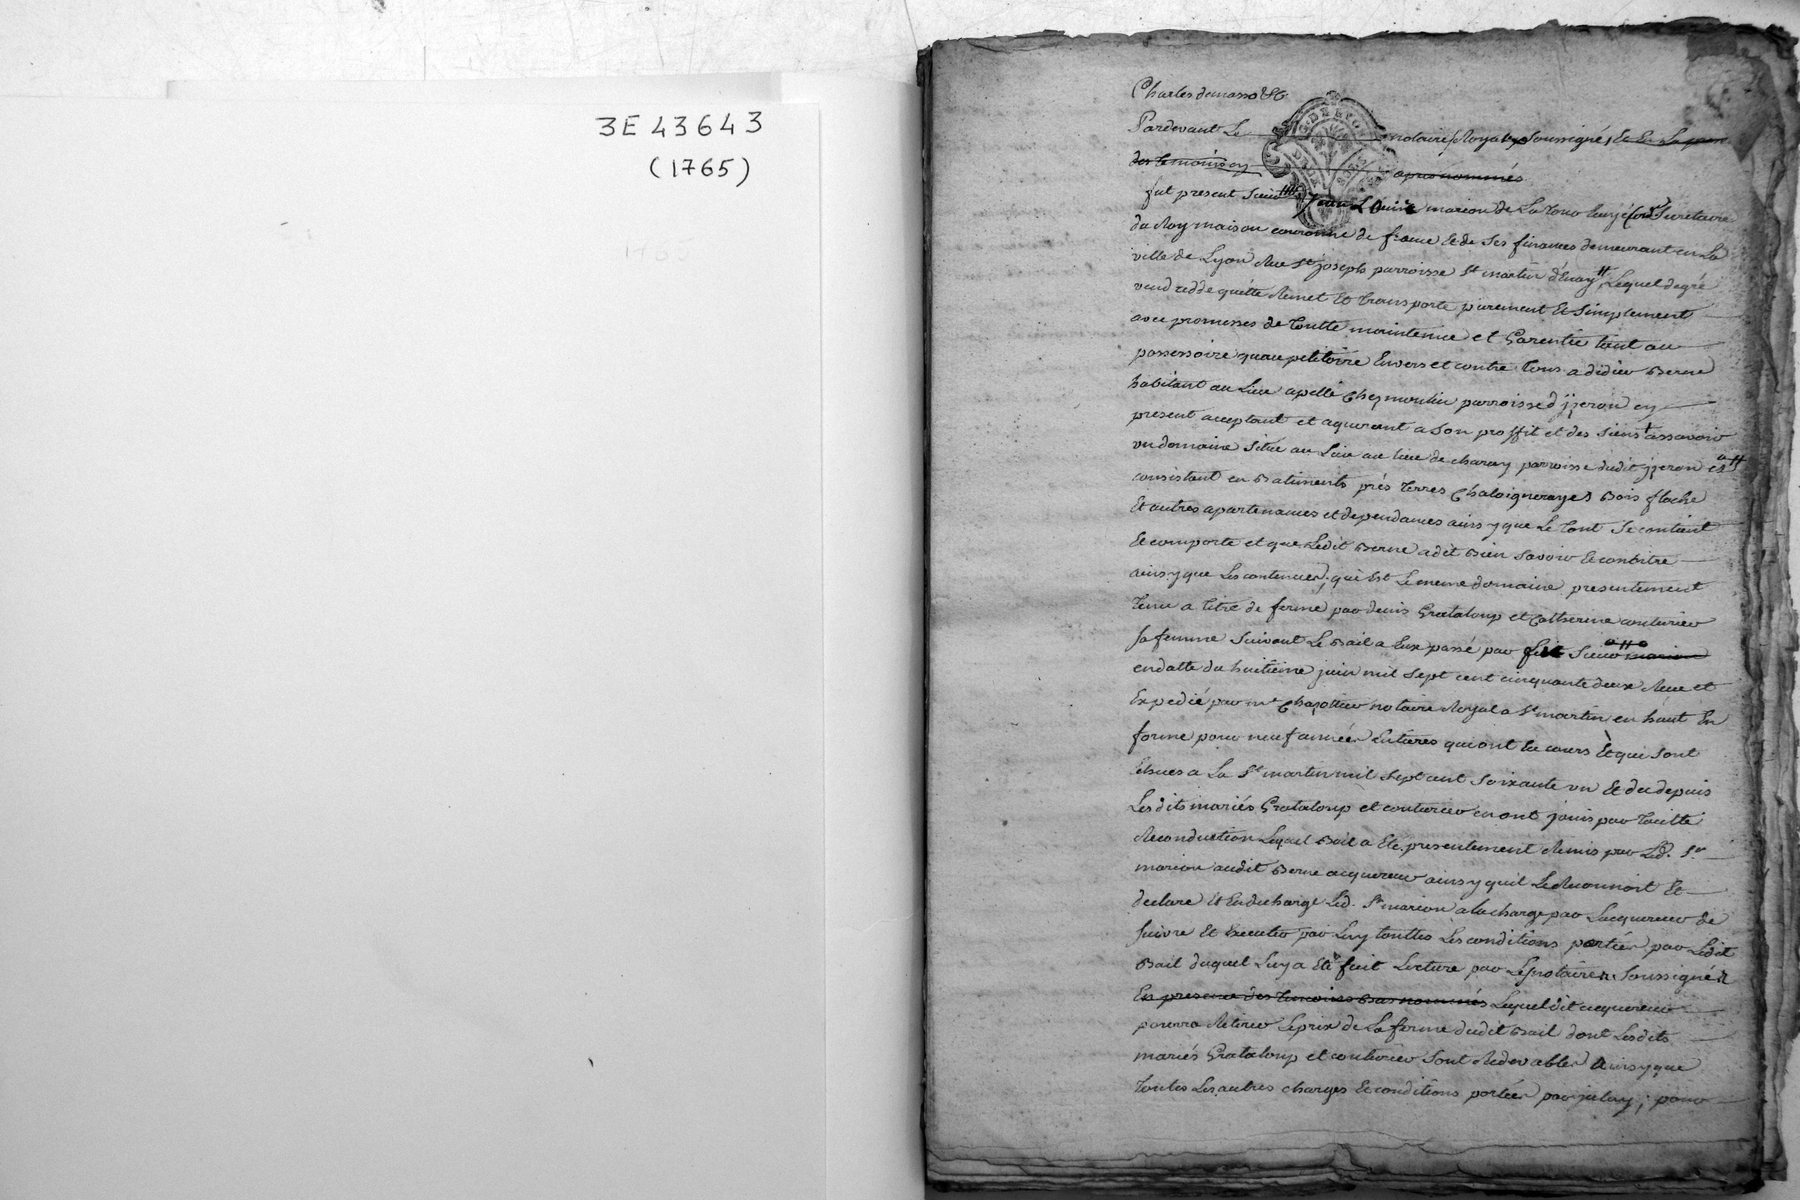 3E 43643
(1765)
Charles demasso &c
Pardevant Le notaire Royal Soussigné, Et En La presence
des temoins cy apres nommés
fut present Sieur Jean Louis marion de La tour Ecuyer Secretaire
du Roy maison couronne de france Et de Ses finances demeurant en La
ville de Lyon Rue St joseph parroisse St martin d'Enay, Lequel de gré
vend cedde quitte Remet Et transporte purement Et Simplement
avec promesses de toutte maintenue et Garentie tant au
possessoire quau petitoire Envers et contre tous a didier Berne
habitant au Lieu apellé Chez moulin parroisse d'jzeron cy
present acceptant et aquerant a Son proffit et des Siens assavoir
un domaine Situé au Lieu au lieu de charay parroisse dudit jzeron
consistant en Batiments prés terres Chataignerayes Bois flache
Et autres apartenances et dependances ainsy que Le tout Se contient
Et comporte et que Ledit Berne a dit Bien Savoir Et conoitre
ainsy que Les contenues, qui Est Le meme domaine presentement
tenu a titre de ferme par denis Grataloup et Catherine couturier
Sa femme Suivant Le Bail a Eux passé par Sieur marion
en datte du huitieme juin mil Sept cent cinquante deux Receu et
Expedié par me Chazottier notaire Royal a St martin en haut En
forme pour neuf années Entieres qui ont Eu cours Et qui Sont
Echues a La St martin mil Sept cent Soixante un Et du depuis
Lesdits mariés Grataloup et couturier en ont joüis par tacitte
Reconduction Lequel Bail a Eté presentement Remis par Led. Sr
marion audit Berne acquereur ainsy quil Le Reconnoit Et
declare Et En decharge Led. Sr marion a la charge par Lacquereur de
Suivre Et Executer par Luy touttes Les conditions portées par Ledit
Bail duquel Luy a Eté fait Lecture par Les notaires Soussignés
En presence des temoins Bas nommés Lequel dit acquereur
pourra Retirer Le prix de La ferme dudit Bail dont Lesdits
mariés Grataloup et couturier Sont Redevables ainsy que
toutes Les autres charges Et conditions portées par jceluy ; pour